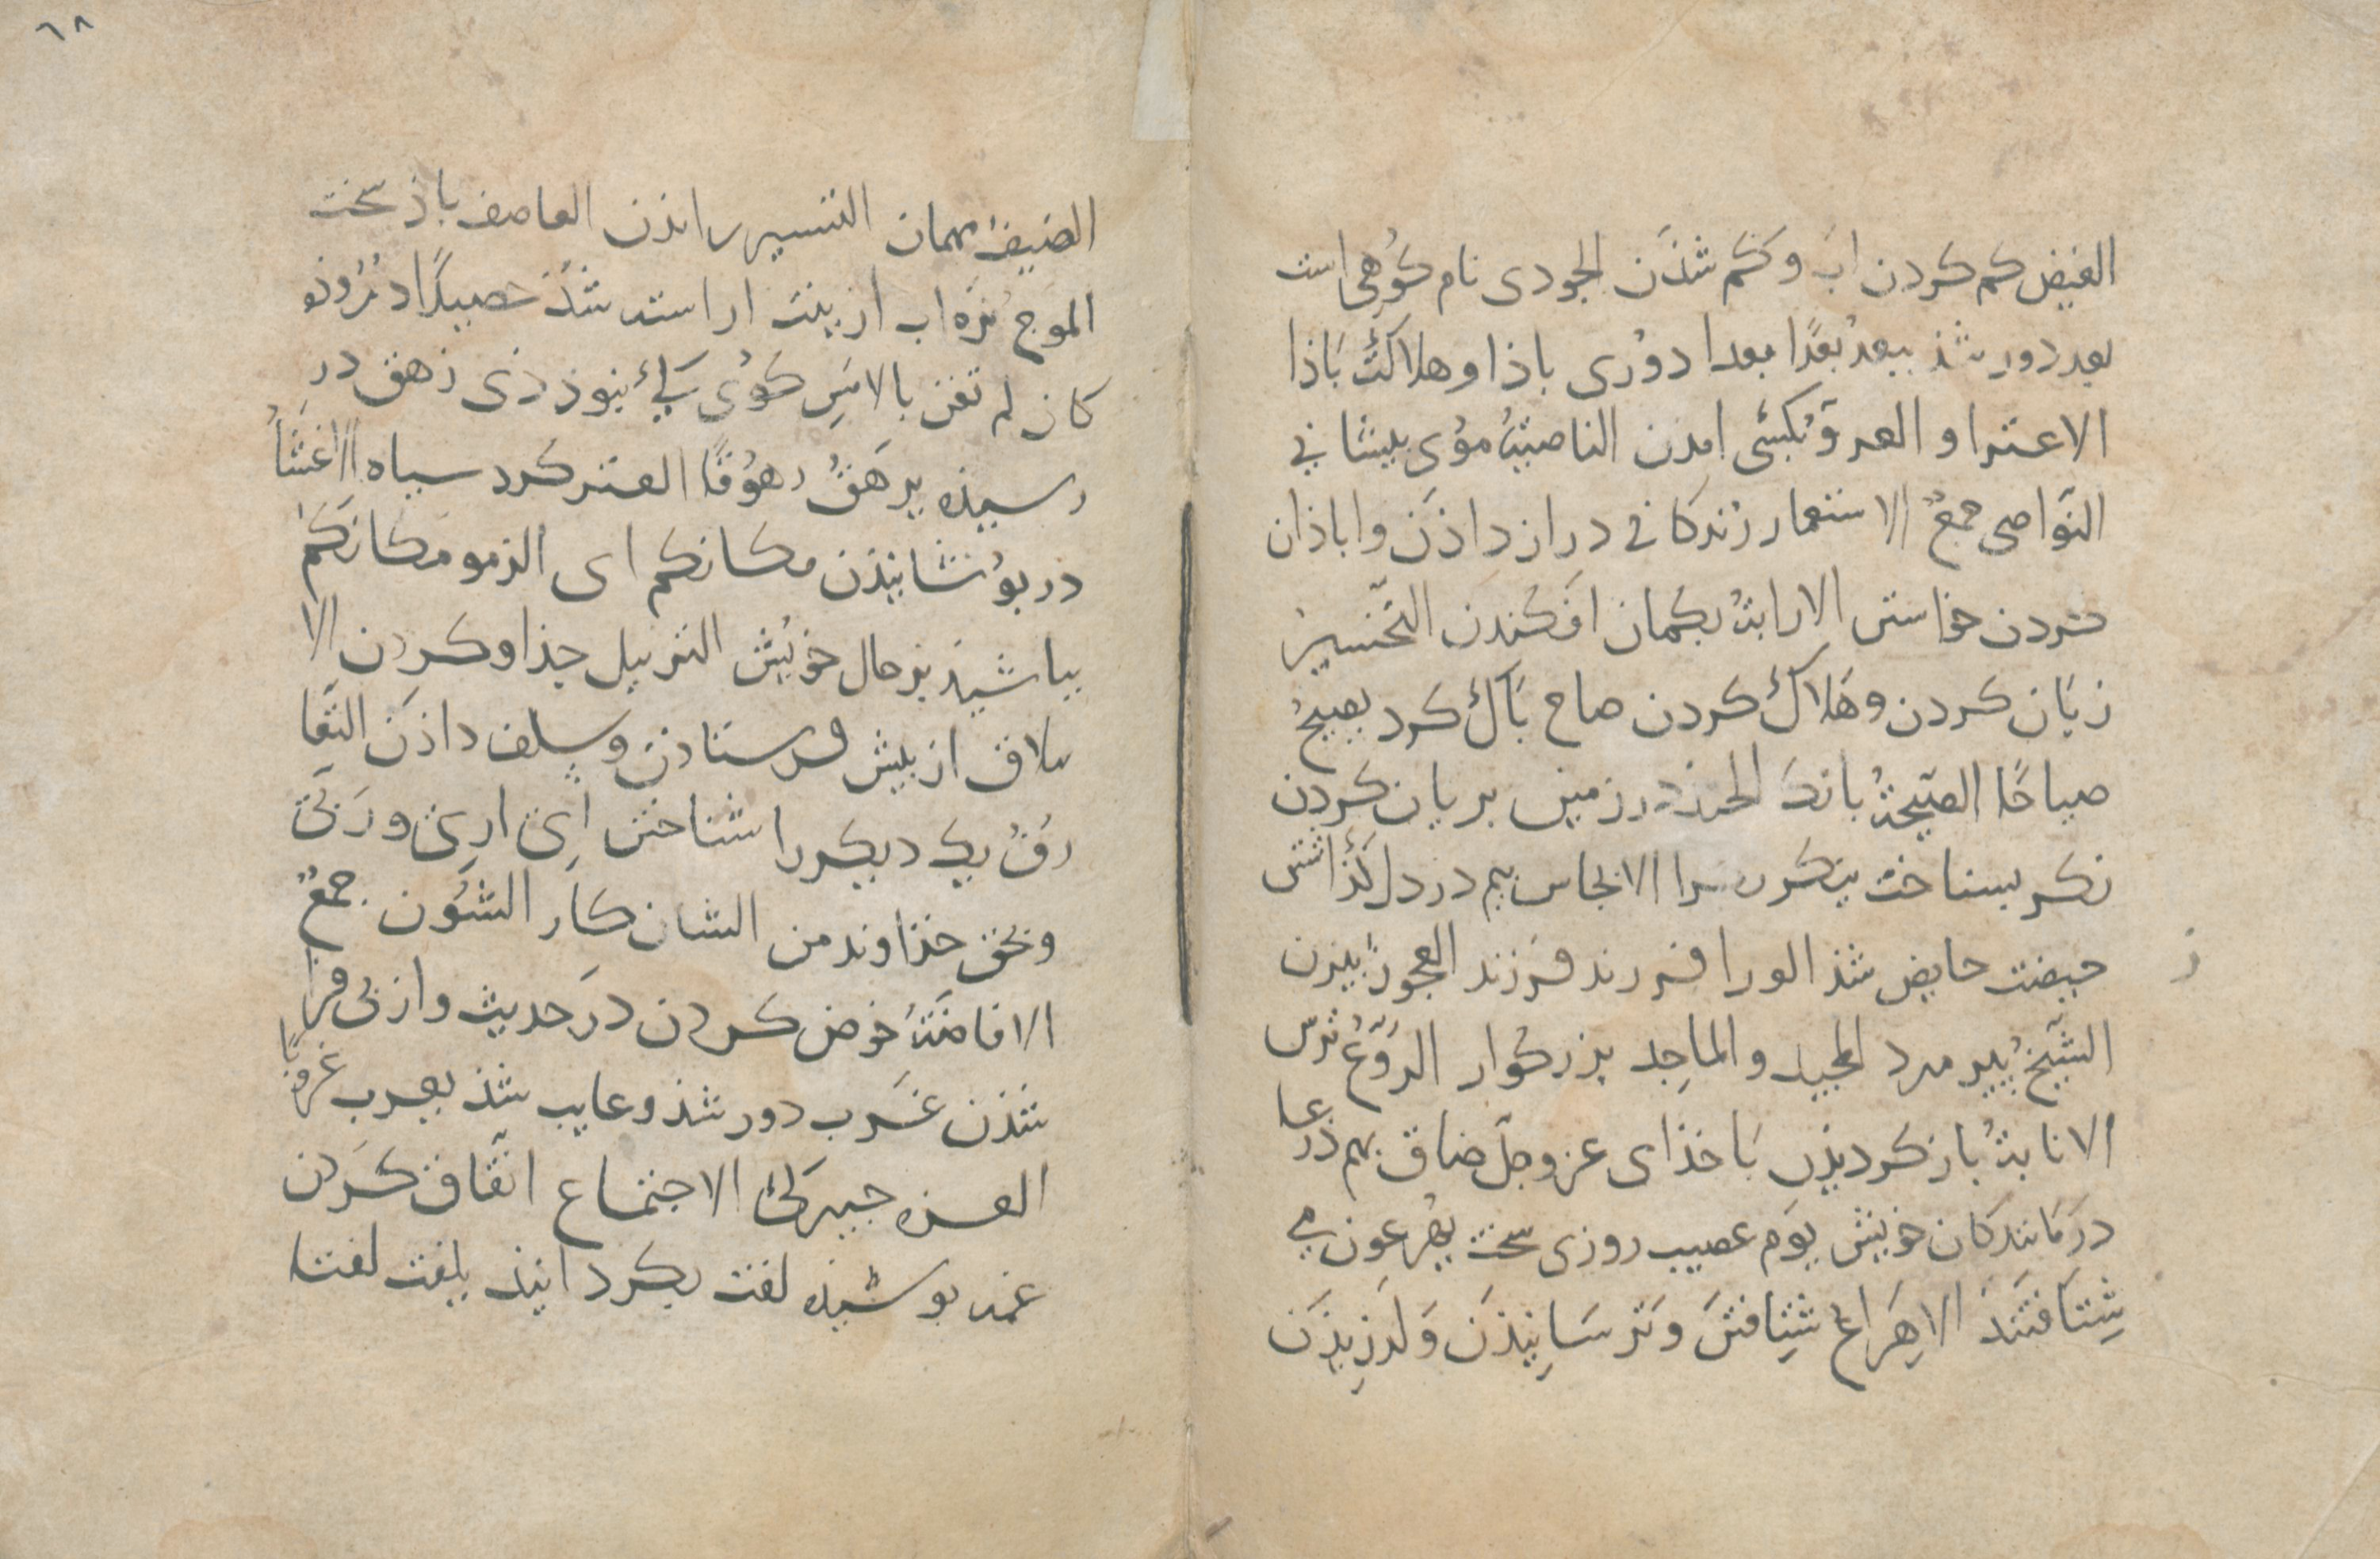 الغیض کم کردن ابَ و کَم شذَن الجودی نام کُوهی است
بعد دور شذ یبعدُ بُعْدًا بعدا دوُری باذا و هلاکَتْ بَاذا
الاعتراو العروَ بکَسَی امدن الناصیَةُ مؤی بیشانی
النَّواصی جمعٌ الاستعمار زندکانی دراز داذَن و اباذان
کردن خواستن الارابةُ بکمان افکندن التَّخسیر
زیَان کردن و هَلاکْ کردن صاح بَانک کرد یصیحُ
صیاحًا الصَّیحةُ بانک الحنذ در زمین بریان کردن
نکر بشناخت ینکر سرا الایجاس بیم در دل کذاشتن
حیضت حایض شذ الورا فرزند فرزند العجوز بیرزن
الشَّیخُ بیر مرد المجید و الماجِد بزرکوار الرَّوعُ ترس
الانابةُ باز کردیذن بَا خذای عز وجلّ ضاق بهم ذرعا
درمَاندکان خویش یوَم عصیب روزی سخت یُهرعون می
شِتَافتَندَ الاِهَراعُ شِتِافتنَ وَ تَرسَانِیذَن وَ لرَزِیذَن
ز
٦٨
الضیفُ مهمان التسییر راندن العاصف باذ سخت
الموج نَرَه اب ازینت اراسته شذَ حَصِیدًا دُرُوذه
کان لم تغن بالامَسِ کوُی کیْ نبوذ ذی زهق در
رسیذه یرهَقُ رهوُقًا القتر کرد سیاه الاِغشَأُ
در بوُشانیذن مکانکم ای الزمو مَکانَکُم
بباشیذ بر حال خویَش التزییل جذا و کردن الا
سلاف از بیش فرستاذن و سلف داذَن التَّعا
رفُ یک دیکر را شناختن اِی اری و رَبّی
و بحق خذاوند من الشان کَار الشئُون جمعٌ
الافاضَةُ خوض کردن درَ حدیث و از بی فرا
شذن عَزب دور شذ و غایب شذ یعزب عزوُبًا
العزه جیرکی الاجتماع اتّفاق کَردن
غمه بوشیذه لفت بکردانیذ یلفت لفتا